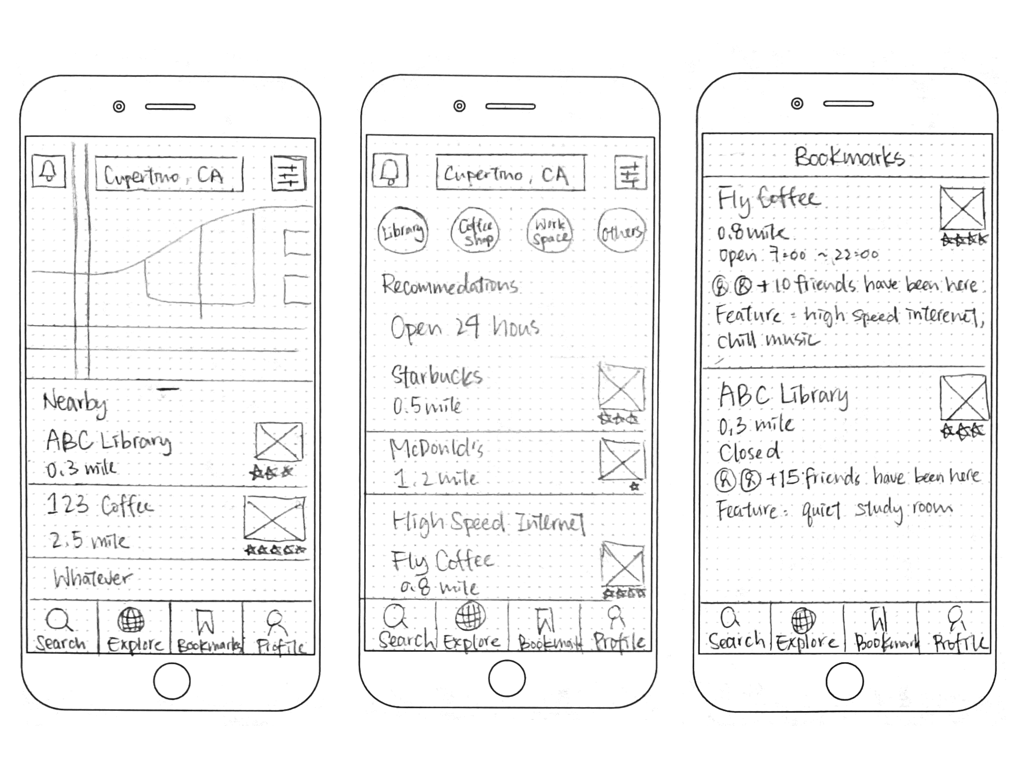 Cupertino, CA
Nearby
ABC Library
0.3 mile
123 Coffee
2.5 mile
Whatever
Search
Explore
Bookmarks
Profile
Cupertino, CA
Library
Coffee
Shop
Work
Space
Others
Recommedations
Open 24 hous
Starbucks
0.5 mile
McDonld's
1.2 mile
High Speed Internet
Fly Coffee
0.8 mile
Search
Explore
Bookmark
Profile
Bookmarks
Fly Coffee
0.8 mile
open 7:00 ~ 22:00
+10 friends have been here
Feature = high speed interenet,
chill music
ABC Library
0.3 mile
Closed
+15 friends have been here
Feature: quiet study room
Search
Explore
Bookmark
Profile